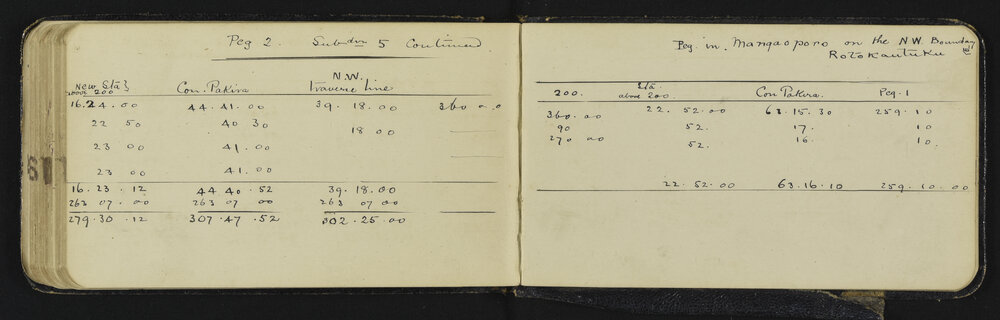 Peg 2. Subdn 5 Continued
New Sta}
above 200
Con. Pakira
N.W.
traverse line
16.24.00 44.41.00 39.18.00 360.0.0
22 50 40 30 18 00
23 00 41.00
23 00 41.00
16.23.12 44.40.52 39.18.00
263 07.00 263 07 00 263 07 00
279.30.12 307.47.52 302.25.00
Peg. in. Mangaoporo on the N.W. Boundary
Rotokautuku
200. Sta
above 200. Con Pakira. Peg. 1
360.00 22.52.00 63.15.30 259.10
90 52. 17. 10
270.00 52. 16. 10.
22.52.00 63.16.10 259.10.00